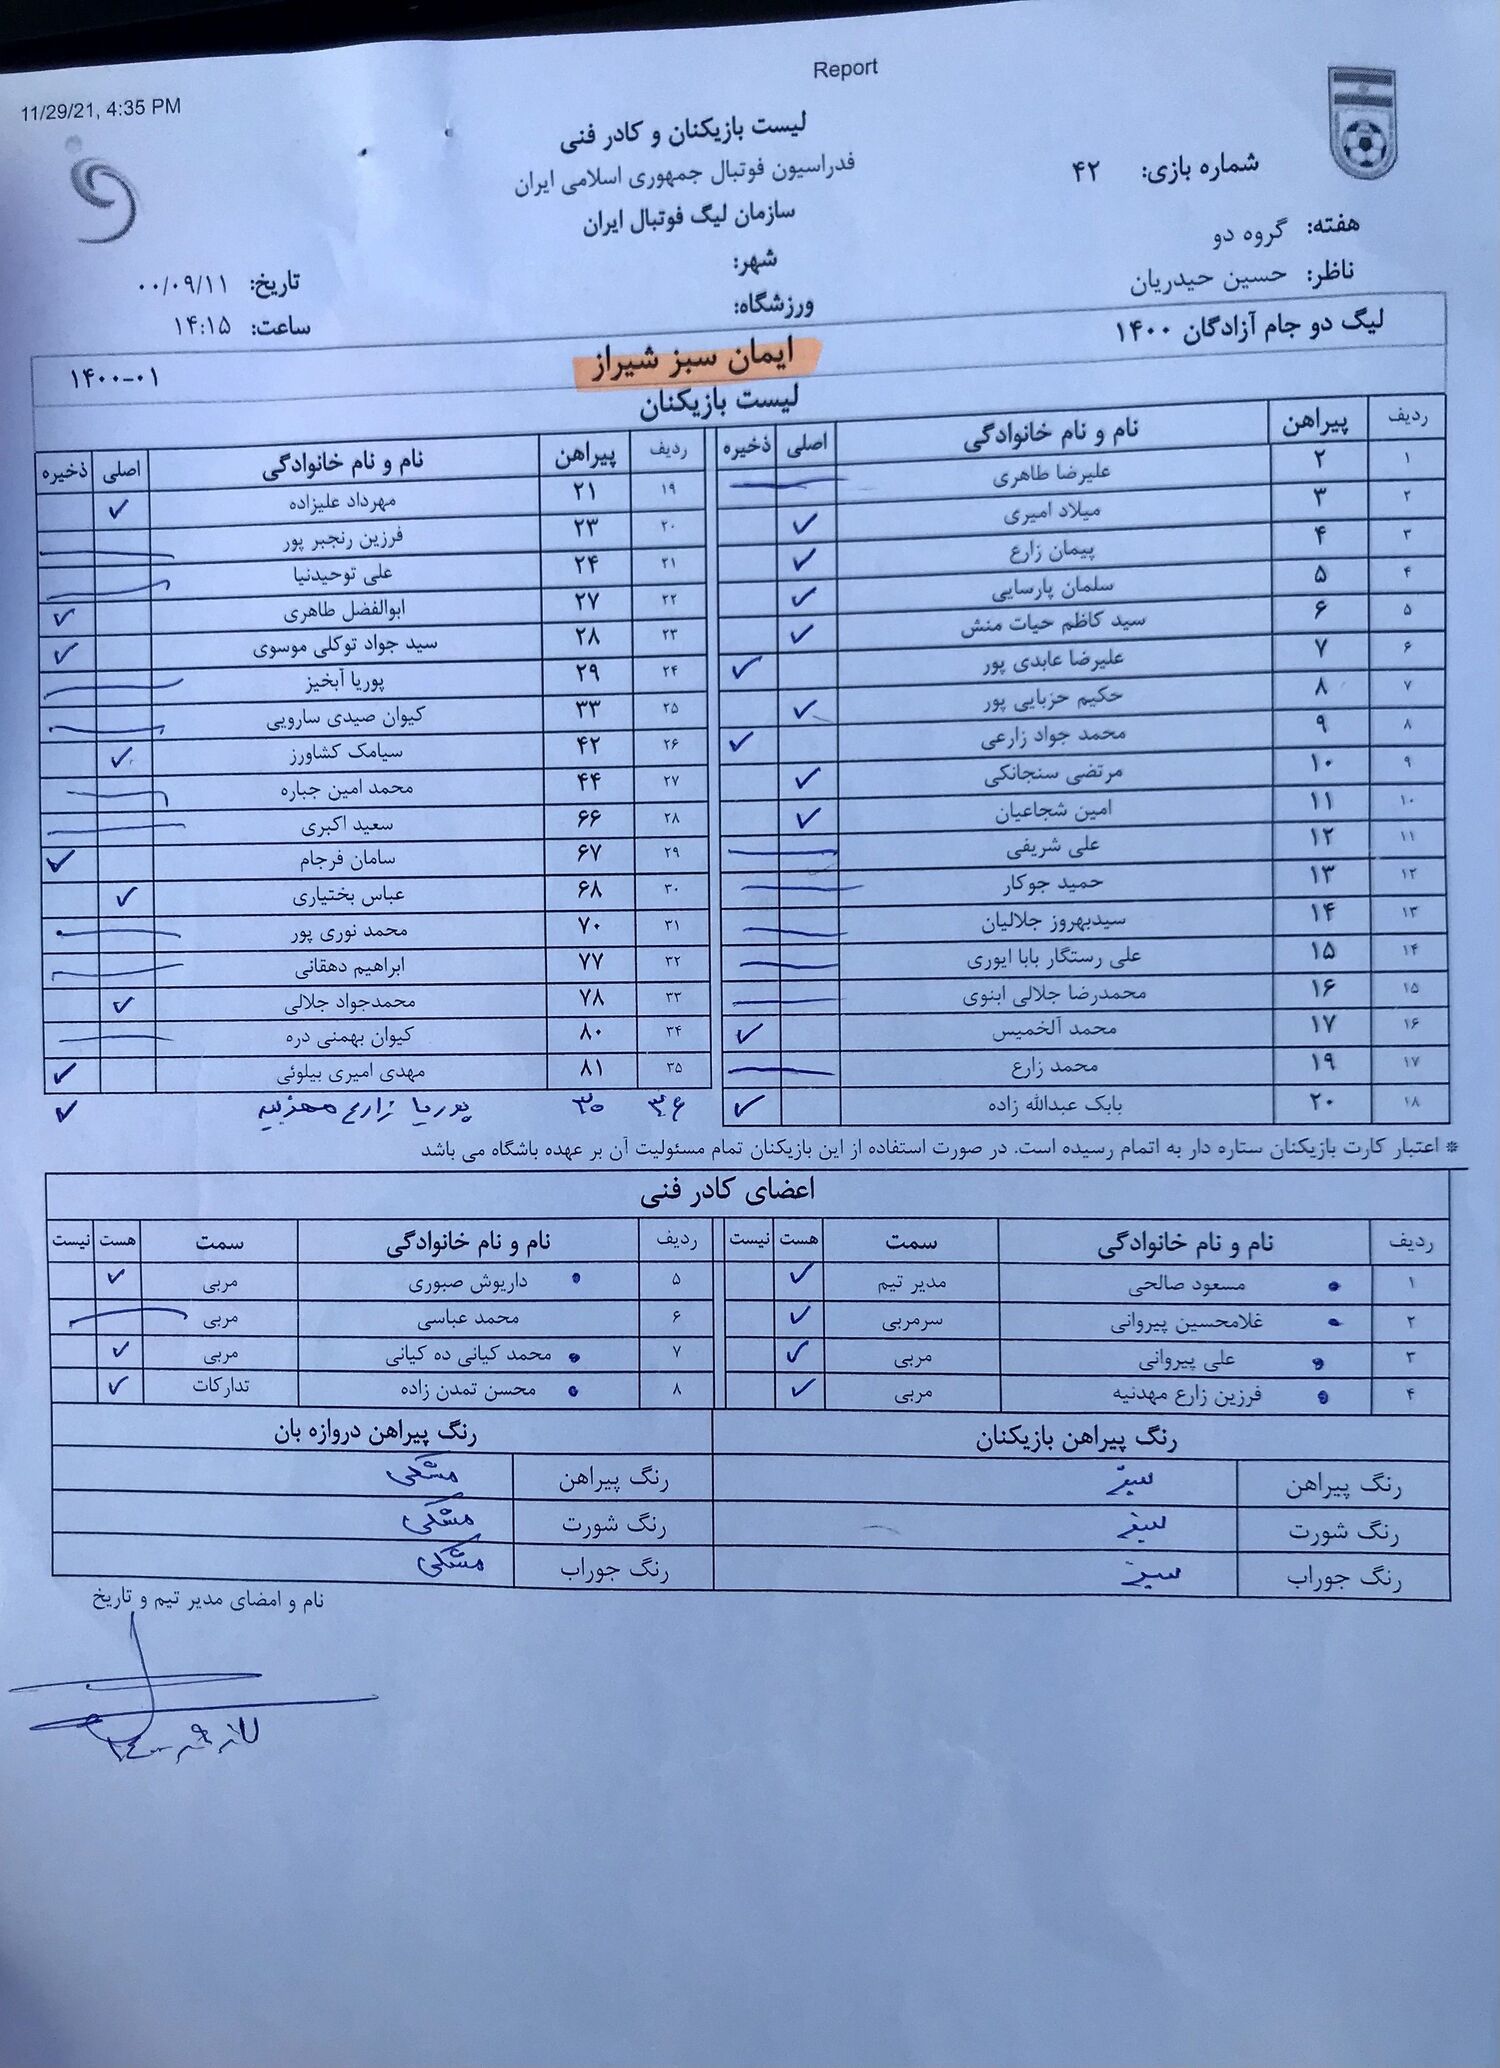 Report
11/29/21, 4:35 PM
لیست بازیکنان و کادر فنی
فدراسیون فوتبال جمهوری اسلامی ایران
سازمان لیگ فوتبال ایران
شماره بازی: ۴۲
هفته: گروه دو
ناظر: حسین حیدریان
شهر:
ورزشگاه:
تاریخ: ۰۰/۰۹/۱۱
ساعت: ۱۴:۱۵
لیگ دو جام آزادگان ۱۴۰۰
ایمان سبز شیراز
۱۴۰۰-۰۱
لیست بازیکنان
ردیف پیراهن نام و نام خانوادگی اصلی ذخیره
۱ ۲ علیرضا طاهری
۲ ۳ میلاد امیری ✓
۳ ۴ پیمان زارع ✓
۴ ۵ سلمان پارسایی ✓
۵ ۶ سید کاظم حیات منش ✓
۶ ۷ علیرضا عابدی پور ✓
۷ ۸ حکیم حزبایی پور ✓
۸ ۹ محمد جواد زارعی ✓
۹ ۱۰ مرتضی سنجانکی ✓
۱۰ ۱۱ امین شجاعیان ✓
۱۱ ۱۲ علی شریفی
۱۲ ۱۳ حمید جوکار
۱۳ ۱۴ سیدبهروز جلالیان
۱۴ ۱۵ علی رستگار بابا ایوری
۱۵ ۱۶ محمدرضا جلالی ابنوی
۱۶ ۱۷ محمد آلخمیس ✓
۱۷ ۱۹ محمد زارع
۱۸ ۲۰ بابک عبدالله زاده ✓
ردیف پیراهن نام و نام خانوادگی اصلی ذخیره
۱۹ ۲۱ مهرداد علیزاده ✓
۲۰ ۲۳ فرزین رنجبر پور
۲۱ ۲۴ علی توحیدنیا
۲۲ ۲۷ ابوالفضل طاهری ✓
۲۳ ۲۸ سید جواد توکلی موسوی ✓
۲۴ ۲۹ پوریا آبخیز
۲۵ ۳۳ کیوان صیدی سارویی
۲۶ ۴۲ سیامک کشاورز ✓
۲۷ ۴۴ محمد امین جباره
۲۸ ۶۶ سعید اکبری
۲۹ ۶۷ سامان فرجام ✓
۳۰ ۶۸ عباس بختیاری ✓
۳۱ ۷۰ محمد نوری پور
۳۲ ۷۷ ابراهیم دهقانی
۳۳ ۷۸ محمدجواد جلالی ✓
۳۴ ۸۰ کیوان بهمنی دره
۳۵ ۸۱ مهدی امیری بیلوئی ✓
۳۶ ۳۰ پوریا زارع ✓
* اعتبار کارت بازیکنان ستاره دار به اتمام رسیده است. در صورت استفاده از این بازیکنان تمام مسئولیت آن بر عهده باشگاه می باشد
اعضای کادر فنی
ردیف نام و نام خانوادگی سمت هست نیست
۱ مسعود صالحی مدیر تیم ✓
۲ غلامحسین پیروانی سرمربی ✓
۳ علی پیروانی مربی ✓
۴ فرزین زارع مهدنیه مربی ✓
ردیف نام و نام خانوادگی سمت هست نیست
۵ داریوش صبوری مربی ✓
۶ محمد عباسی مربی
۷ محمد کیانی ده کیانی مربی ✓
۸ محسن تمدن زاده تدارکات ✓
رنگ پیراهن بازیکنان
رنگ پیراهن سبز
رنگ شورت سبز
رنگ جوراب سبز
رنگ پیراهن دروازه بان
رنگ پیراهن مشکی
رنگ شورت مشکی
رنگ جوراب مشکی
نام و امضای مدیر تیم و تاریخ